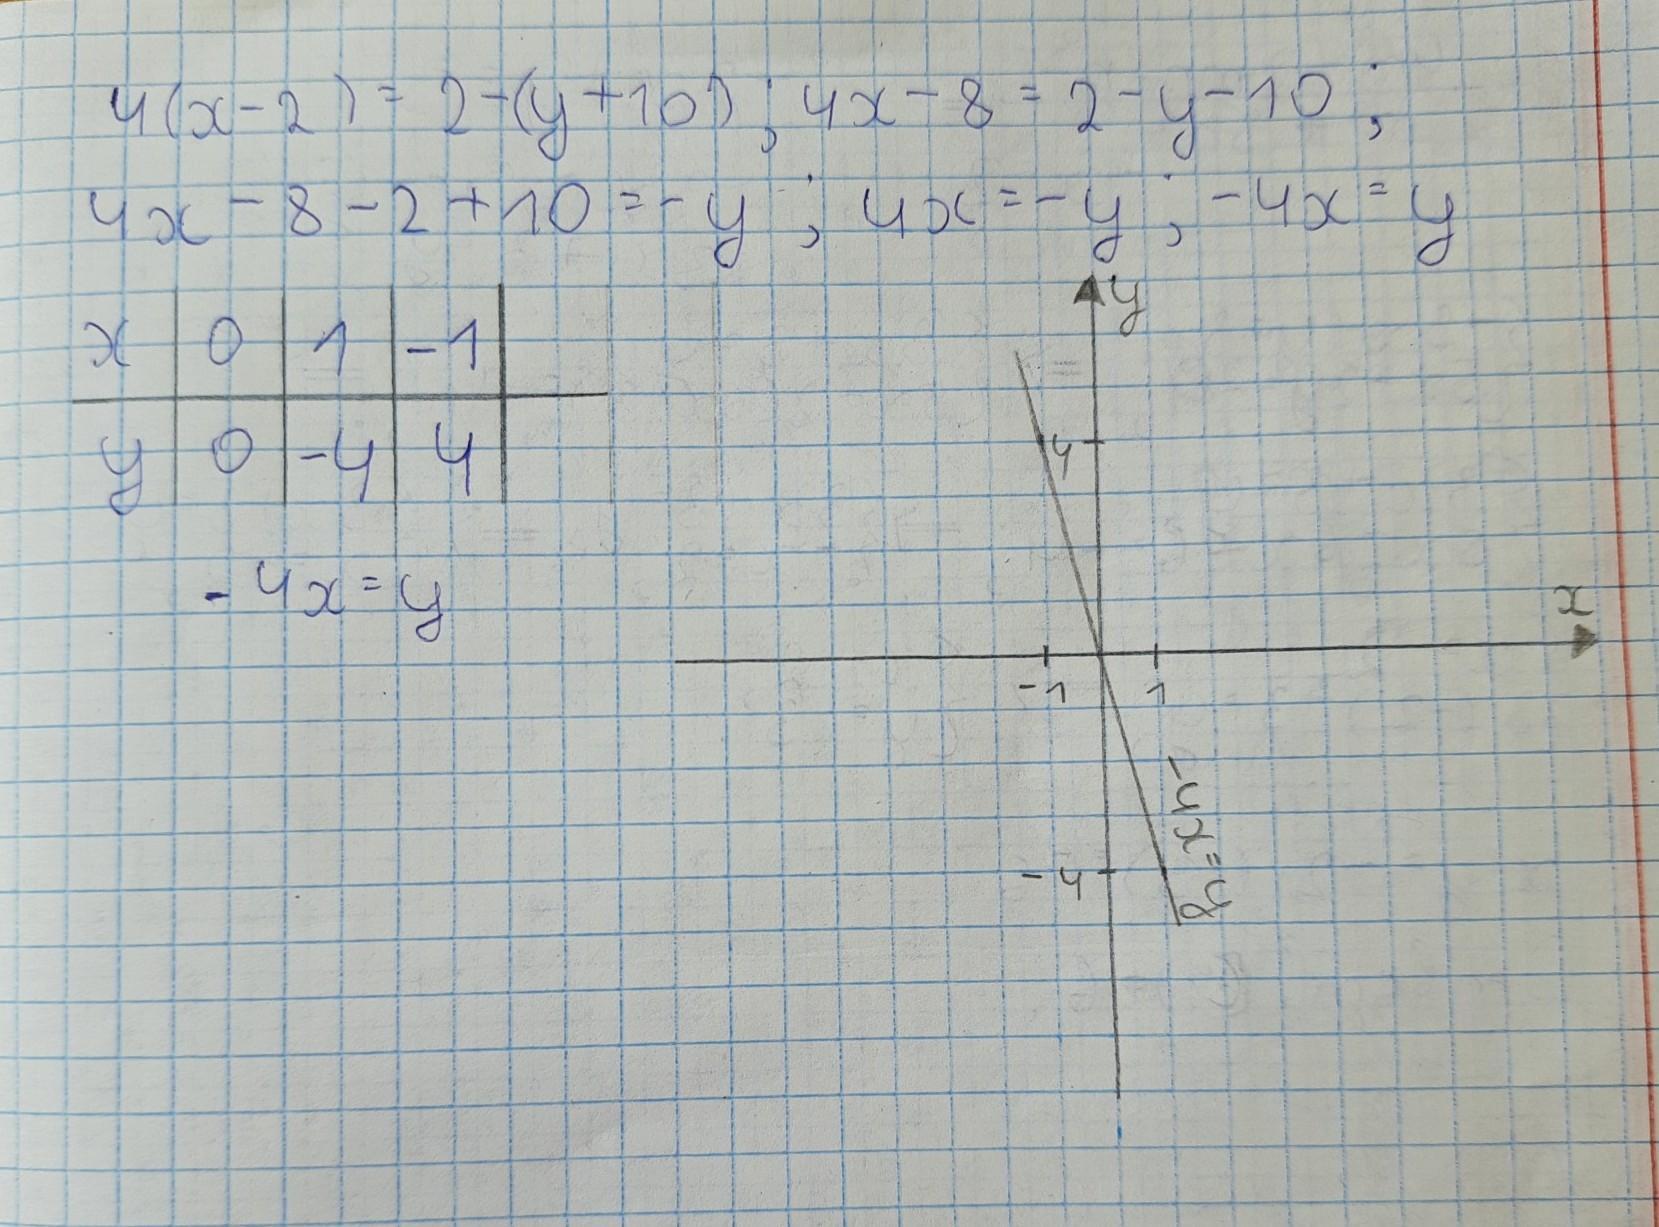 4(x-2)=2-(y+10); 4x-8=2-y-10;
4x-8-2+10=-y; 4x=-y; -4x=y
x 0 1 -1
y 0 -4 4
-4x=y
y
4
x
-1 1
-4
-4x=y